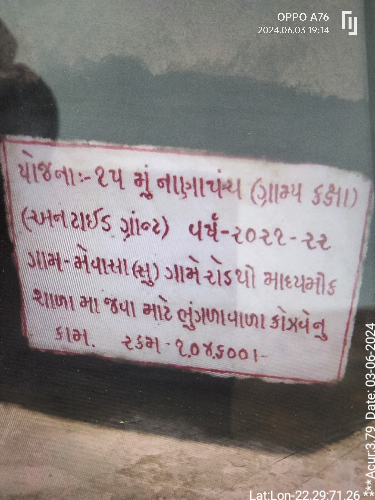 OPPO A76
2024.06.03 19:14
યોજનાઃ-૧૫ મું નાણાપંચ (ગ્રામ્ય કક્ષા)
(અનટાઈડ ગ્રાંન્ટ) વર્ષ-૨૦૨૧-૨૨
ગામ-મેવાસા(સુ) ગામે રોડથી માધ્યમીક
શાળા મા જવા માટે ભુંગળાવાળા કોઝવેનુ
કામ. રકમ-૧,૦૪,૬૦૦।-
Lat:Lon-22.29:71.26
***Acur:3.79 Date: 03-06-2024